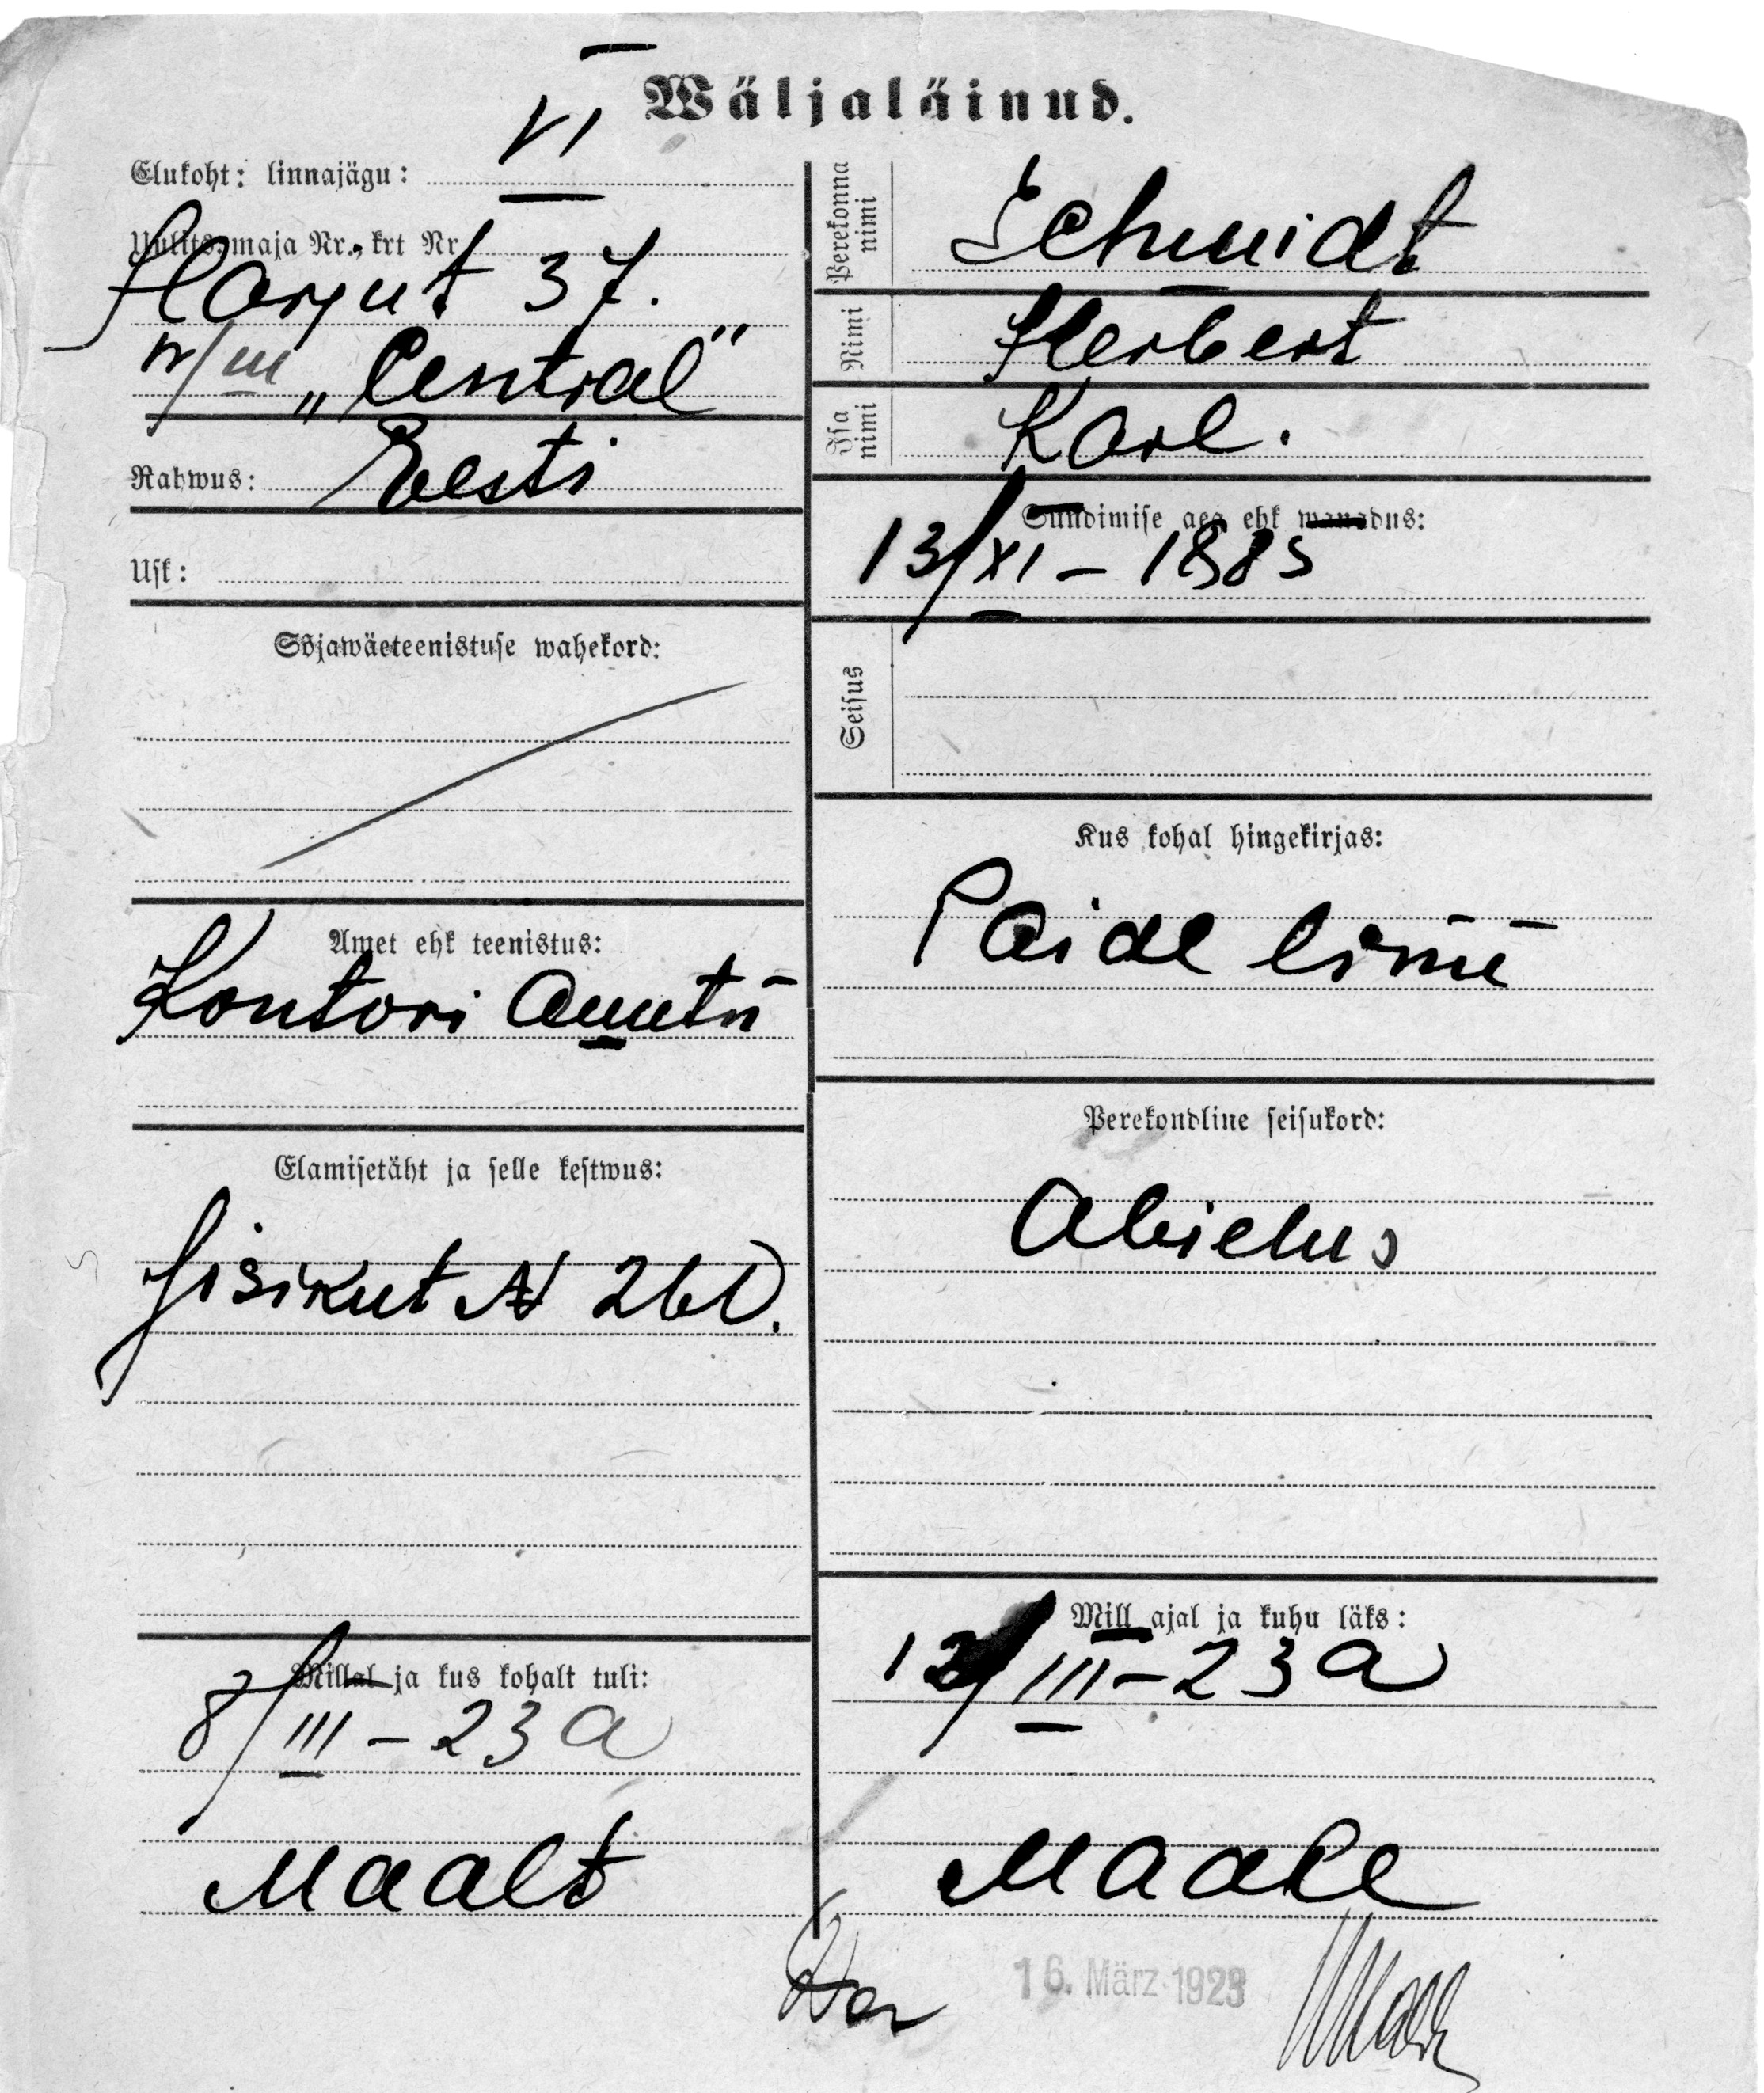 Wäljaläinud.
Elukoht: linnajägu: VI
Uulits, maja Nr., krt Nr
Harjut 37.
„Central"
Rahwus: Eesti
Usk:
Sõjawäeteenistuse wahekord:
Amet ehk teenistus:
Kontori
Elamisetäht ja selle kestwus:
Jisikut N 260.
Millal ja kus kohalt tuli:
8/III – 23 a
Maalt
Perekonna nimi
Schmidt
Nimi
Herbert
Isa nimi
Karl.
Sündimise aeg ehk wanadus:
13/XI – 1885
Seisus
Kus kohal hingekirjas:
Paide linn
Perekondline seisukord:
Abielus
Mill ajal ja kuhu läks:
12/III – 23 a
Maale
16. März 1923